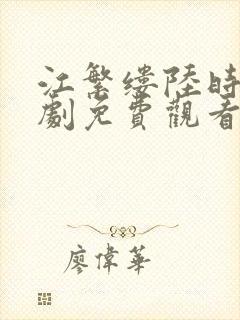 江繁缕陸時
劇免費觀看
廖偉華